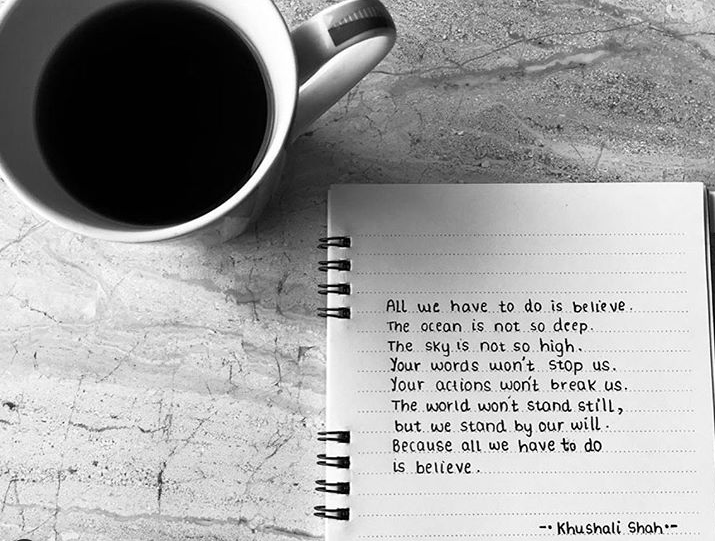 All we have to do is believe.
The ocean is not so deep.
The sky is not so high.
Your words won't stop us.
Your actions won't break us.
The world won't stand still,
but we stand by our will.
Because all we have to do
is believe.
-• Khushali Shah •-